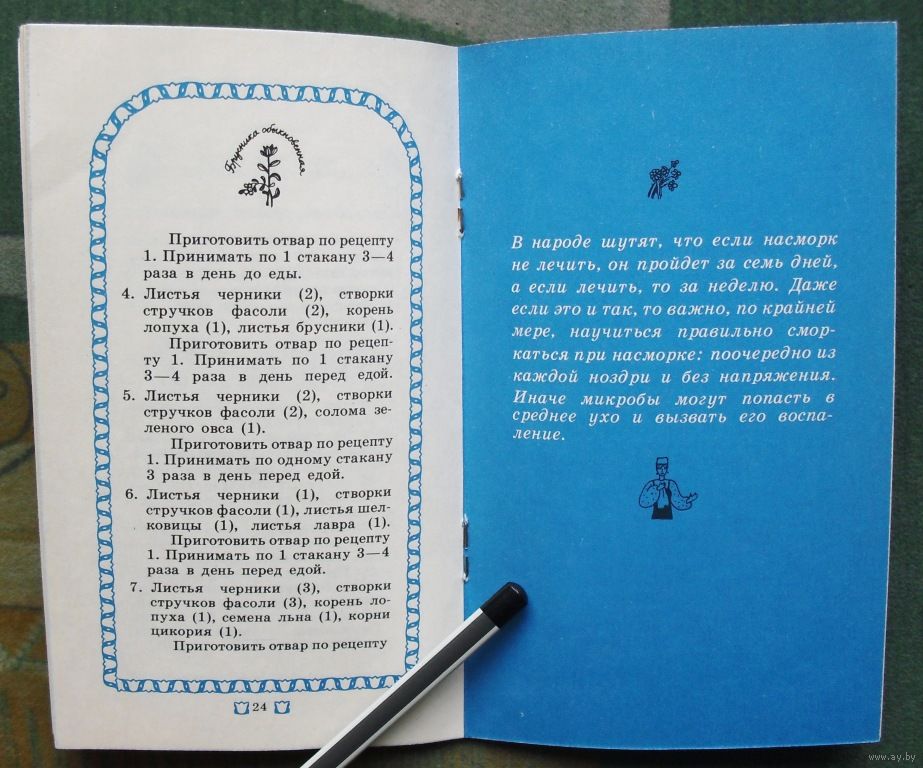 Брусника обыкновенная
Приготовить отвар по рецепту
1. Принимать по 1 стакану 3—4
раза в день до еды.
4. Листья черники (2), створки
стручков фасоли (2), корень
лопуха (1), листья брусники (1).
Приготовить отвар по рецеп-
ту 1. Принимать по 1 стакану
3—4 раза в день перед едой.
5. Листья черники (2), створки
стручков фасоли (2), солома зе-
леного овса (1).
Приготовить отвар по рецепту
1. Принимать по одному стакану
3 раза в день перед едой.
6. Листья черники (1), створки
стручков фасоли (1), листья шел-
ковицы (1), листья лавра (1).
Приготовить отвар по рецепту
1. Принимать по 1 стакану 3—4
раза в день перед едой.
7. Листья черники (3), створки
стручков фасоли (3), корень ло-
пуха (1), семена льна (1), корни
цикория (1).
Приготовить отвар по рецепту
24
В народе шутят, что если насморк
не лечить, он пройдет за семь дней,
а если лечить, то за неделю. Даже
если это и так, то важно, по крайней
мере, научиться правильно смор-
каться при насморке: поочередно из
каждой ноздри и без напряжения.
Иначе микробы могут попасть в
среднее ухо и вызвать его воспа-
ление.
www.ay.by